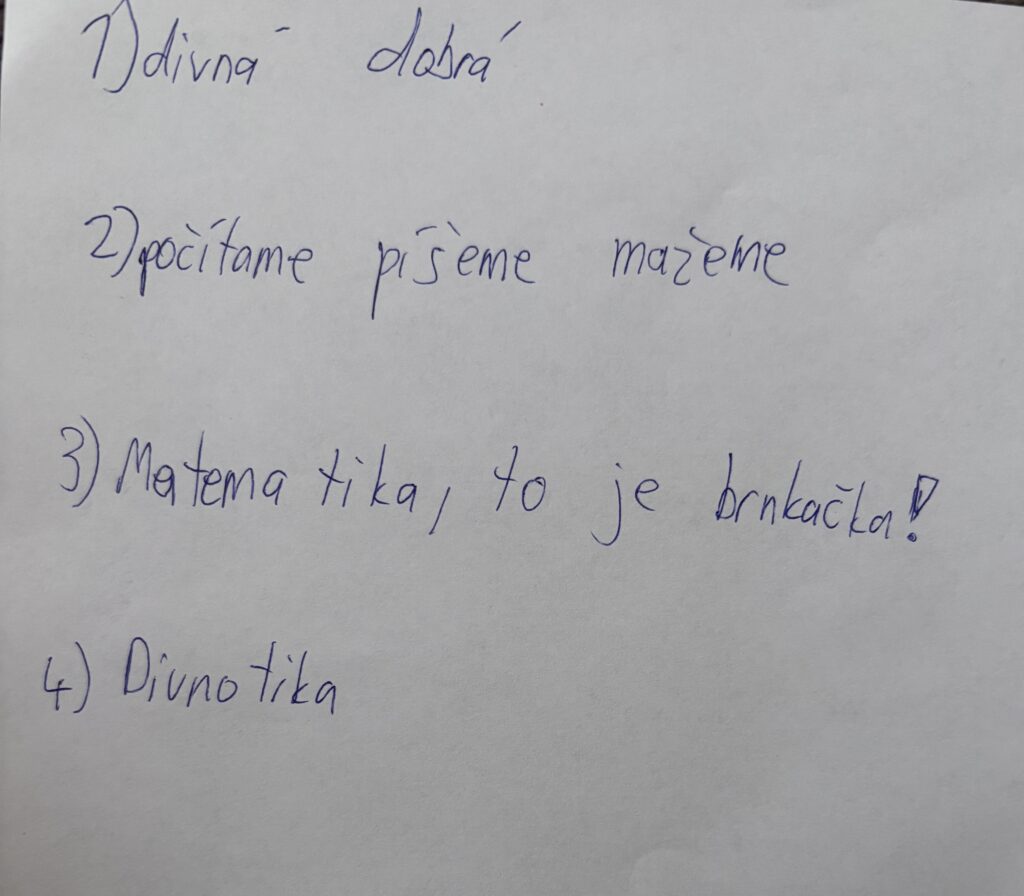 1) divná dobrá
2) počítame píšeme mažeme
3) Matematika, to je brnkačka!
4) Divnotika